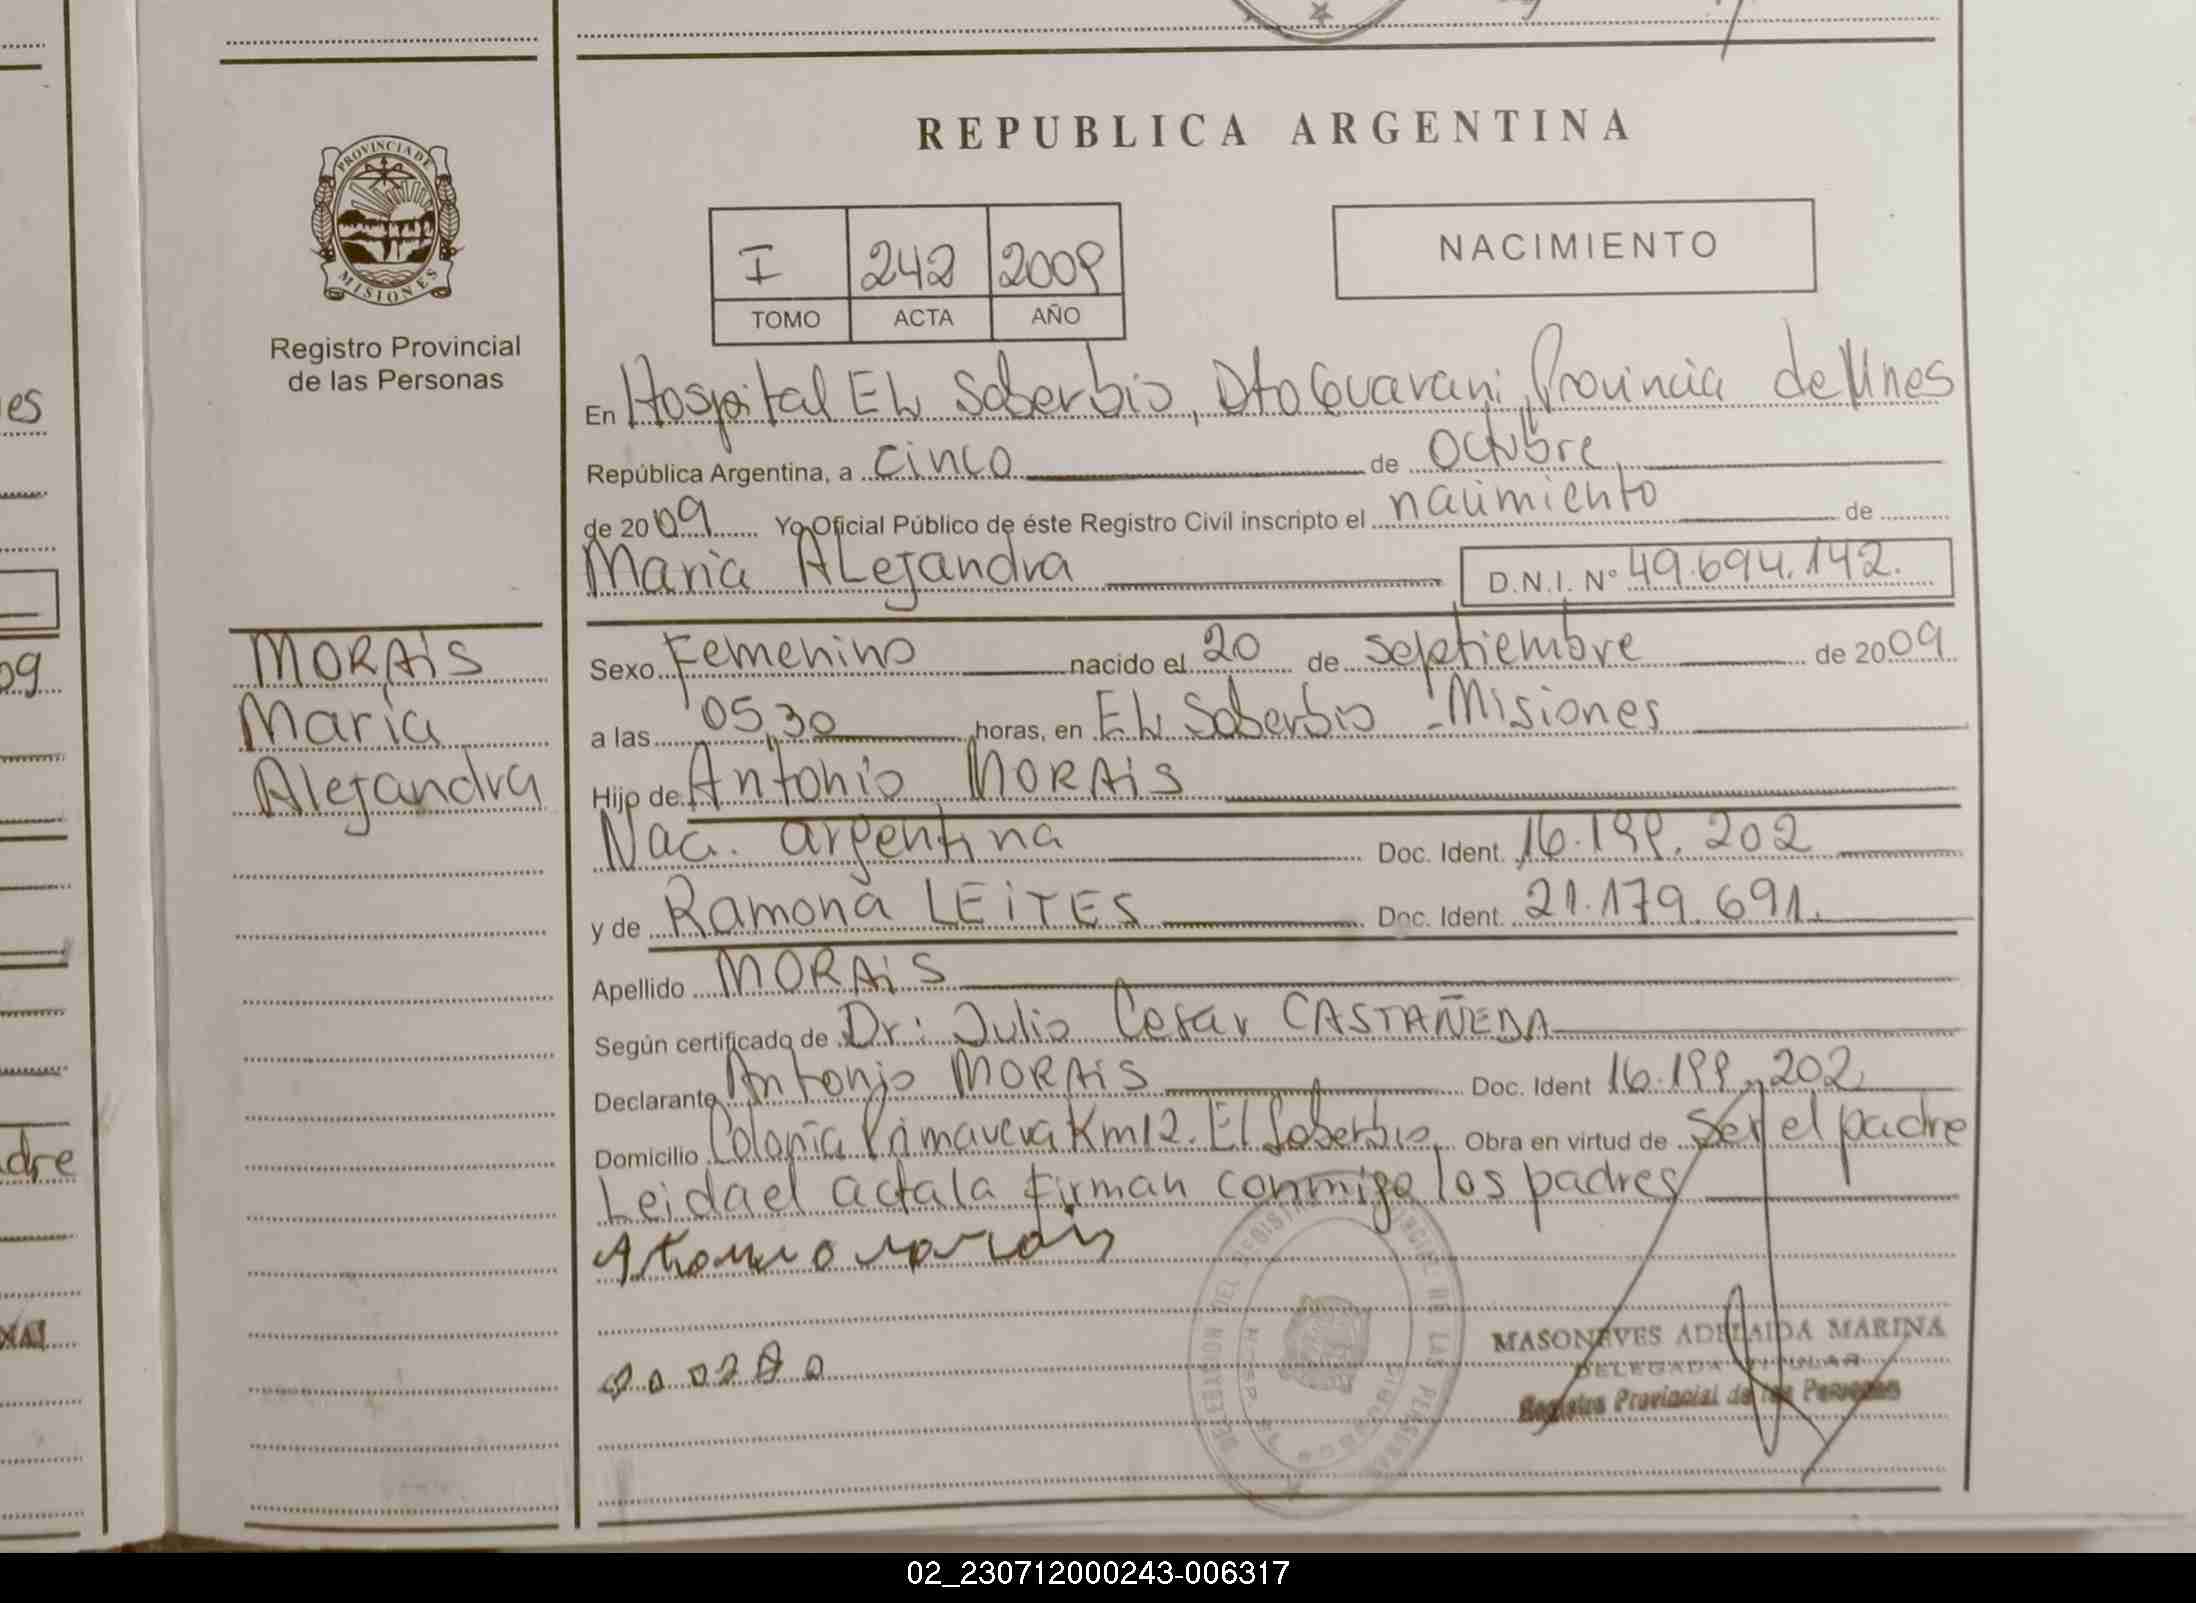 REPUBLICA ARGENTINA
PROVINCIA DE
MISIONES
Registro Provincial
de las Personas
I 242 2009
TOMO ACTA AÑO
NACIMIENTO
En Hospital EL Soberbio, Dto Guarani, Provincia de Mnes
República Argentina, a cinco de octubre
de 2009 Yo Oficial Público de éste Registro Civil inscripto el nacimiento de
Maria ALejandra D.N.I. Nº 49.694.142.
MORAiS
Maria
Alejandra
Sexo Femenino nacido el 20 de septiembre de 2009
a las 05,30 horas, en EL Soberbio - Misiones
Hijo de Antonio MORAiS
Nac. argentina Doc. Ident. 16.199.202
y de Ramona LEiTES Doc. Ident. 21.179.691.
Apellido MORAiS
Según certificado de Dr: Julio Cesar CASTAÑEDA
Declarante Antonio MORAiS Doc. Ident 16.199.202
Domicilio Colonia Primavera Km12. El Soberbio Obra en virtud de ser el padre
Leida el acta la firman conmigo los padres
MASONEVES ADELAIDA MARINA
DELEGADA TITULAR
Registro Provincial de las Personas
02_230712000243-006317